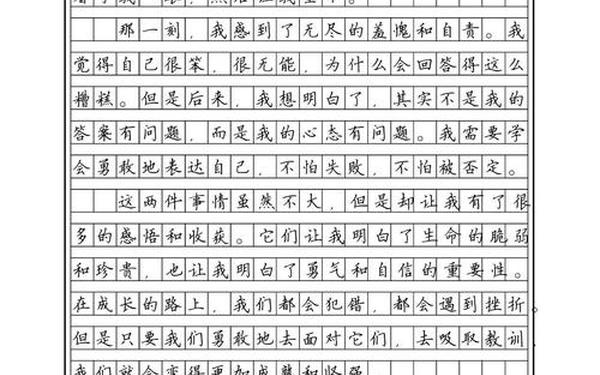 那一刻，我感到了无尽的羞愧和自责。我
觉得自己很笨，很无能，为什么会回答得这么
糟糕。但是后来，我想明白了，其实不是我的
答案有问题，而是我的心态有问题。我需要学
会勇敢地表达自己，不怕失败，不怕被否定。
这两件事情虽然不大，但是却让我有了很
多的感悟和收获。它们让我明白了生命的脆弱
和珍贵，也让我明白了勇气和自信的重要性。
在成长的路上，我们都会犯错，都会遇到挫折。
但是只要我们勇敢地去面对它们，去吸取教训，
我们就会变得更加成熟和坚强